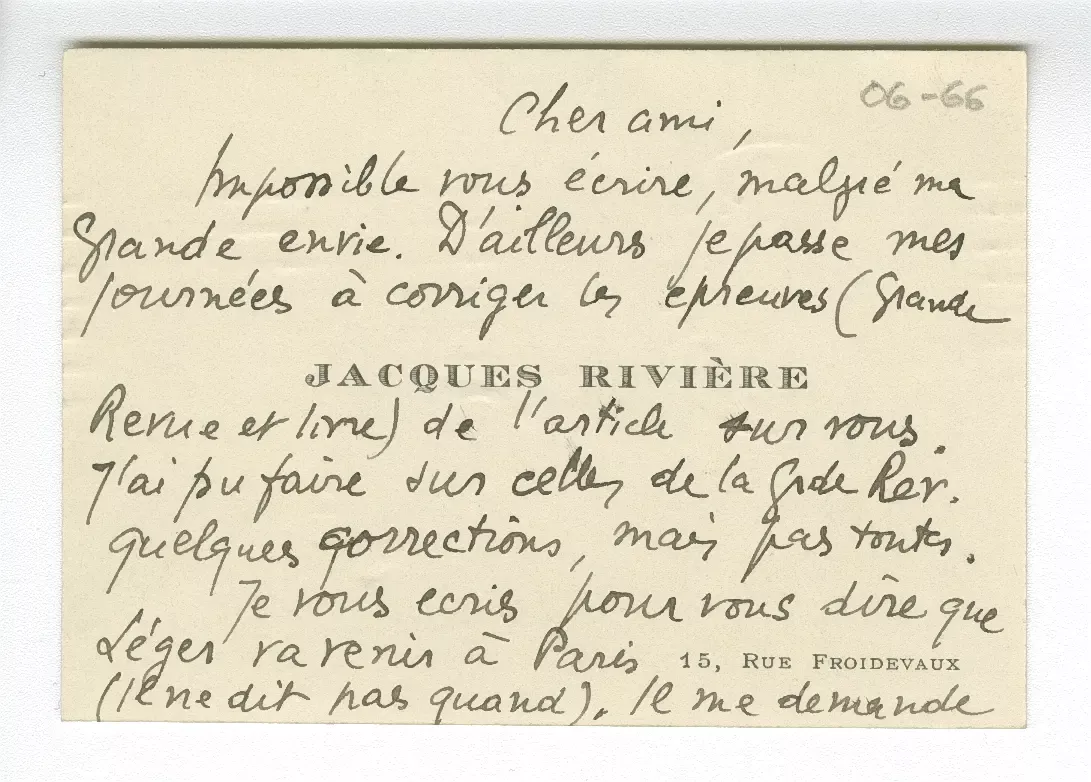 06-66
Cher ami,
Impossible vous écrire, malgré ma
Grande envie. D'ailleurs je passe mes
journées à corriger les épreuves (Grande
JACQUES RIVIÈRE
Revue et livre) de l'article sur vous.
J'ai pu faire sur celles de la Grde Rev.
quelques corrections, mais pas toutes.
Je vous ecris pour vous dire que
Léger va venir à Paris
15, RUE FROIDEVAUX
(Il ne dit pas quand). Il me demande